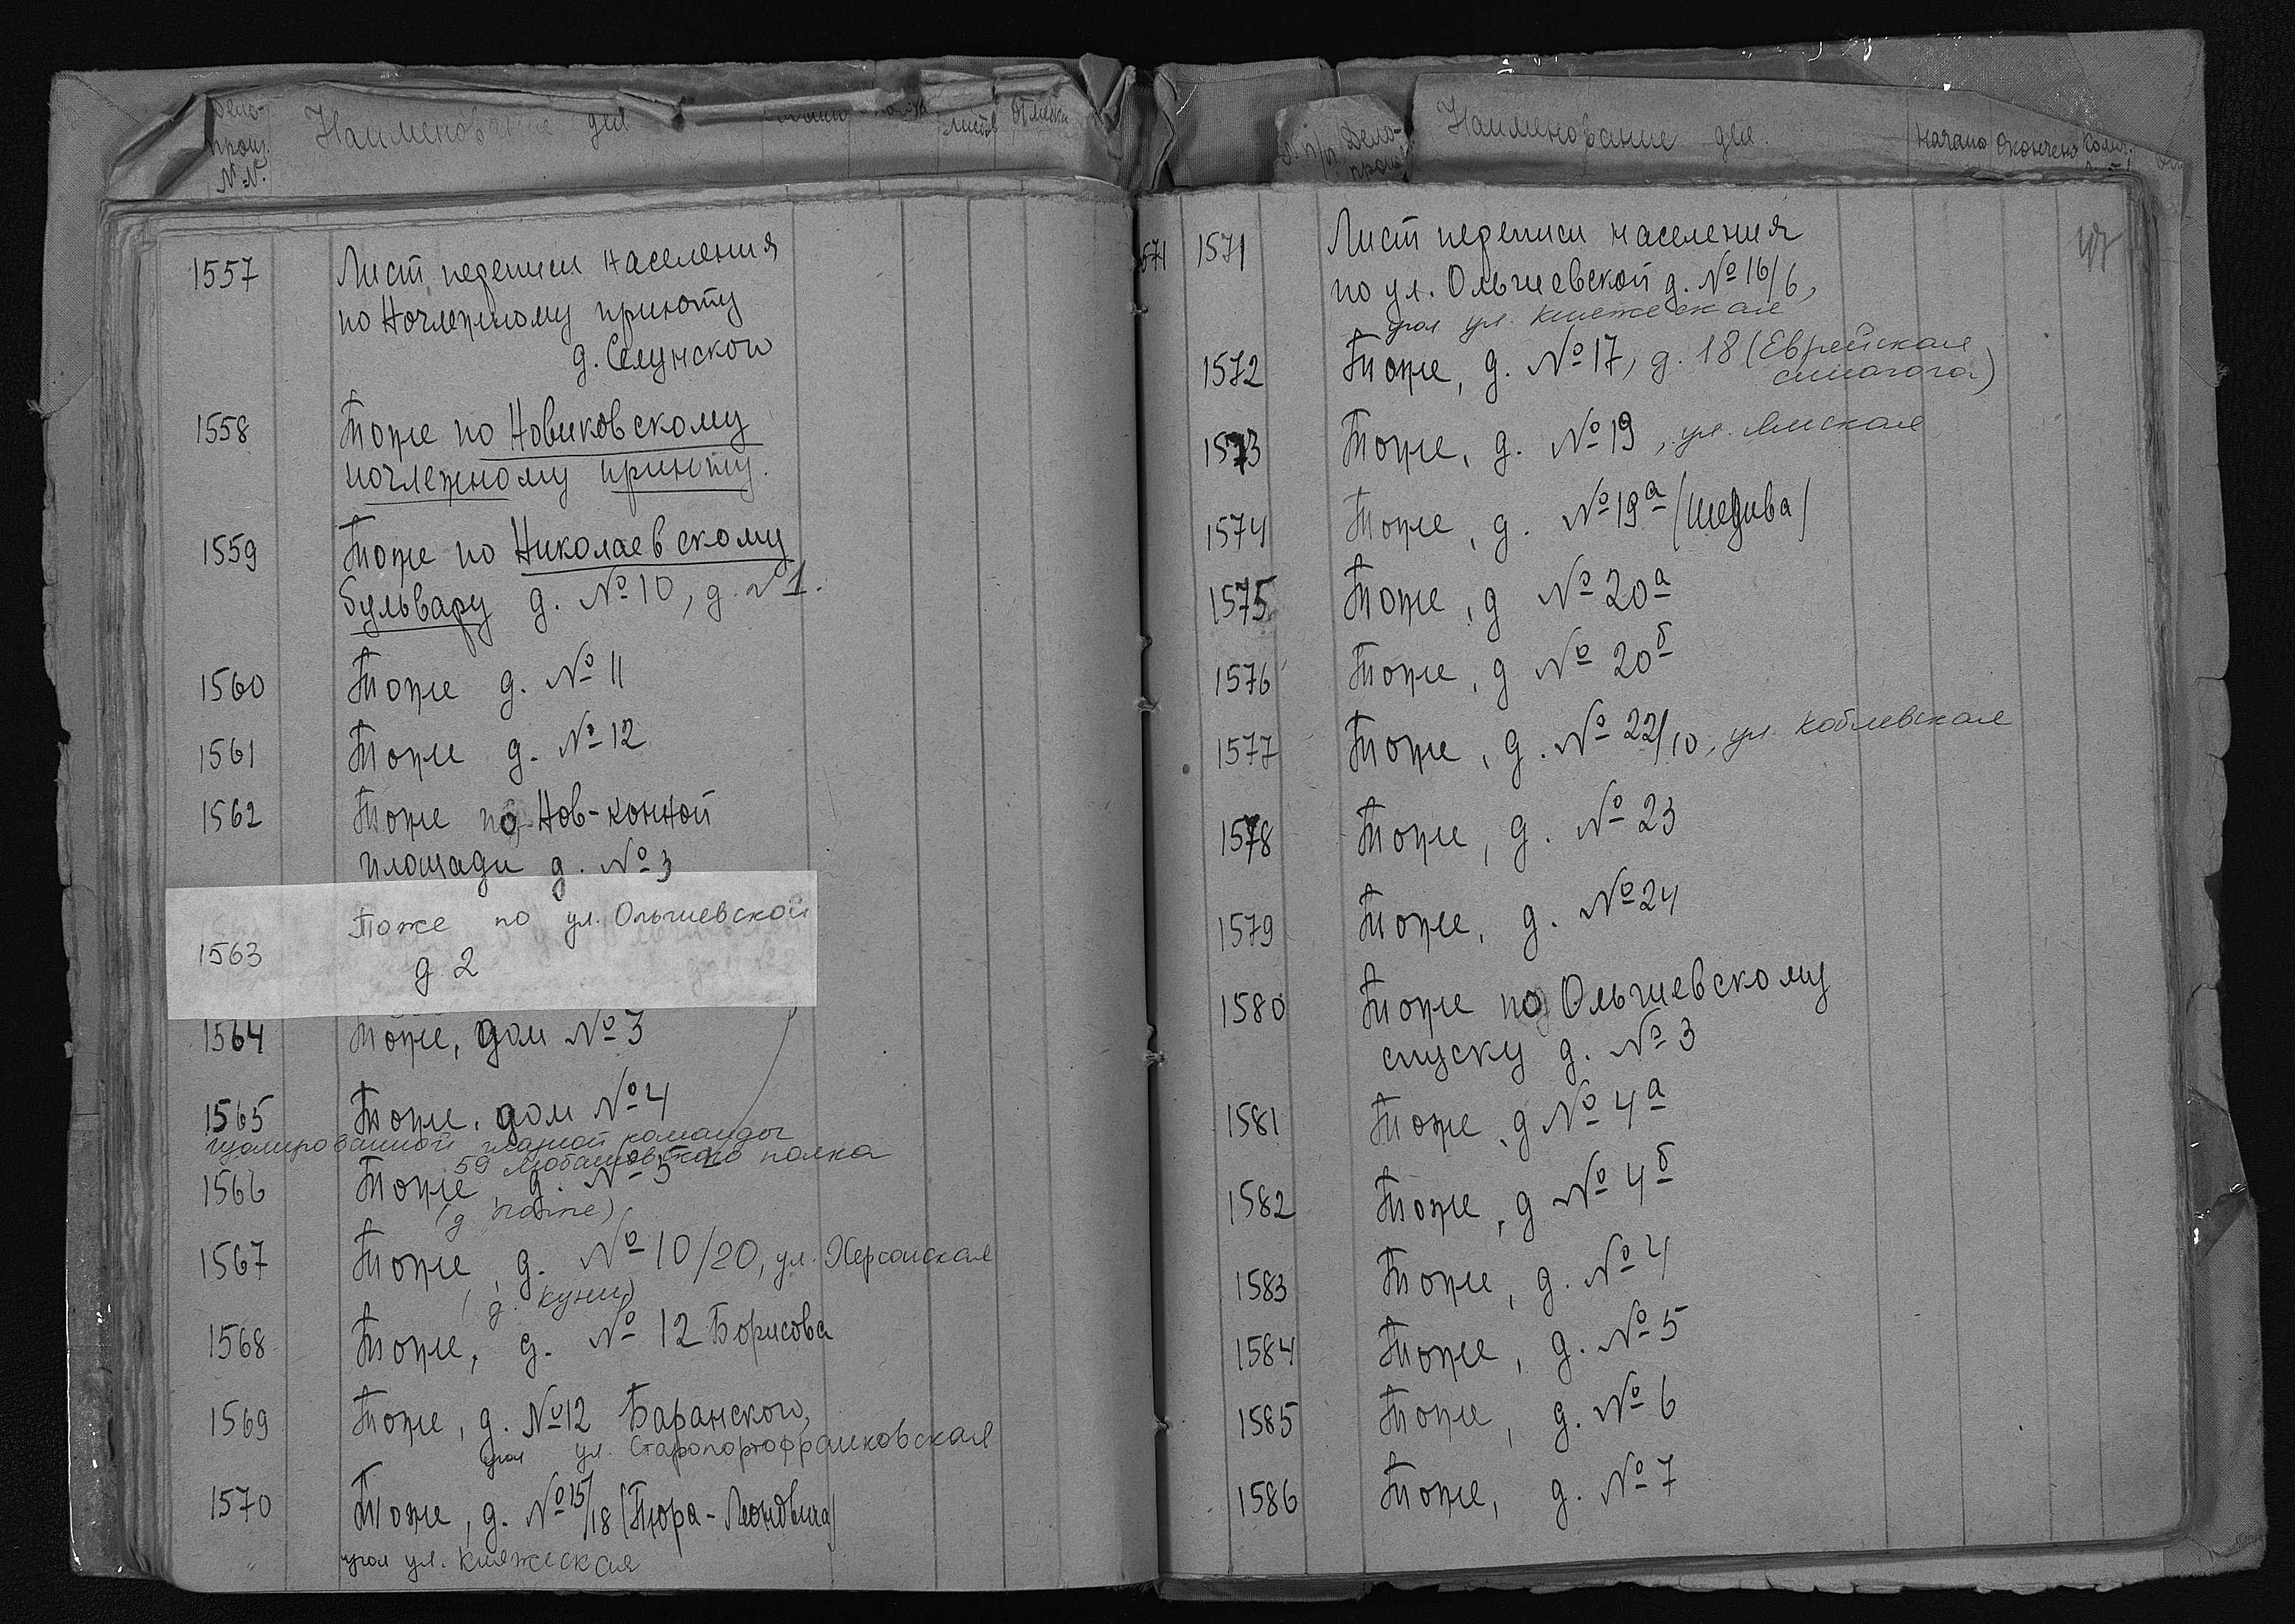 Дело-
произ.
№№
Наименование дел
листов
Отметки
1557 Лист переписи населения
по Ночлежному приюту
д. Селунского
1558 Тоже по Новиковскому
ночлежному приюту.
1559 Тоже по Николаевскому
бульвару д. №10, д. №1.
1560 Тоже д. № 11
1561 Тоже д. №12
1562 Тоже по Нов-конной
площади д. №3
1563 Тоже по ул. Ольгиевской
д. 2
1564 Тоже, дом №3
1565 Тоже, дом №4
изолированной глазной команды
59 Любашовского полка
1566 Тоже, д. №5
1567 Тоже, д. №10/20, ул. Херсонская
(д. Куни)
1568 Тоже, д. № 12 Борисова
1569 Тоже, д. №12 Баранского,
угол ул. Старопортофранковская
1570 Тоже, д. №15/18
угол ул. Княжеская
п/п
Дело-
произ.
Наименование дел.
Начато
Окончено
Колич.
571 1571 Лист переписи населения
по ул. Ольгиевской д. №16/6,
угол ул. Княжеская
1572 Тоже, д. №17, д. 18 (Еврейская
синагога)
1573 Тоже, д. №19, ул. Ямская
1574 Тоже, д. №19а
1575 Тоже, д № 20а
1576 Тоже, д № 20б
1577 Тоже, д. № 22/10, ул. Коблевская
1578 Тоже, д. №23
1579 Тоже, д. №24
1580 Тоже по Ольгиевскому
спуску д. №3
1581 Тоже, д № 4а
1582 Тоже, д № 4б
1583 Тоже, д. №4
1584 Тоже, д. №5
1585 Тоже, д. №6
1586 Тоже, д. №7